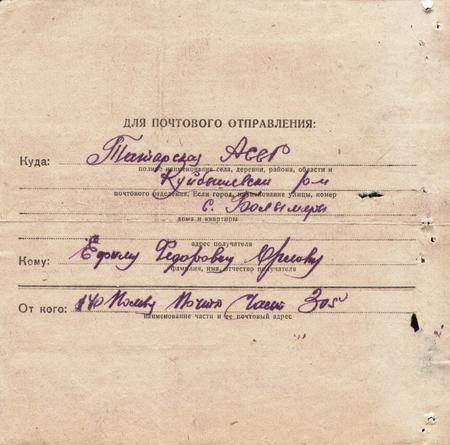 ДЛЯ ПОЧТОВОГО ОТПРАВЛЕНИЯ:
Куда: Татарская АССР
полное наименование села, деревни, района, области и
Куйбышевски р-н
почтового отделения. Если город, наименование улицы, номер
с. Болымеры
дома и квартиры
адрес получателя
Кому: Ефиму Федоровичу
фамилия, имя, отчество получателя
От кого: Почто Част 305
наименование части и ее почтовый адрес